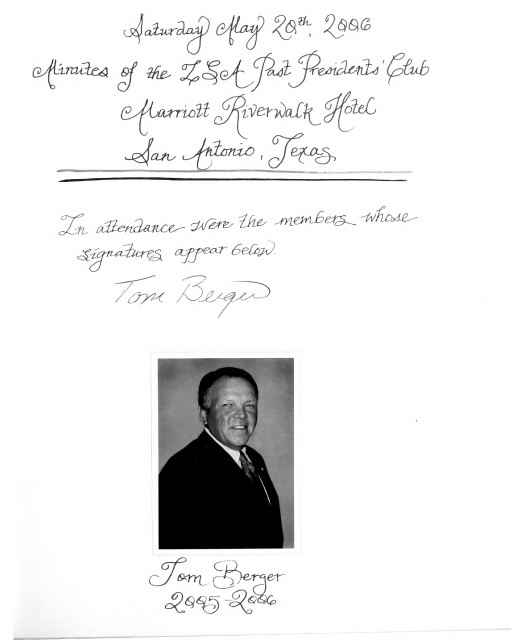 Saturday May 20th, 2006
Minutes of the ISA Past Presidents' Club
Marriott Riverwalk Hotel
San Antonio, Texas
In attendance were the members whose
signatures appear below.
Tom Berger
Tom Berger
2005-2006